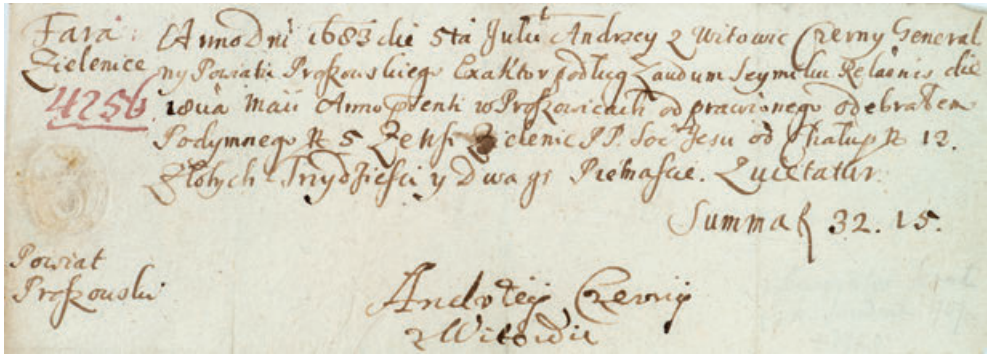 Fara
Zielenice
4256
Anno Dni 1683 die 5ta Julii Andrzey z Witowic Czerny General
ny Powiatu Proszowskiego Exaktor podług Laudum Seymiku Relaōnis die
18va Maii Anno pŕenti w Proszowicach odprawionego odebrałem
Podymnego 5 Ze Wsi Zielenic PP. Soc Jesu od Chałup 12.
Złotych Trzydzieści y Dwa gr Pietnascie. Quietatur.
Summa f 32. 15.
Powiat
Proszouski
Andrzey Czerny
z Witowic